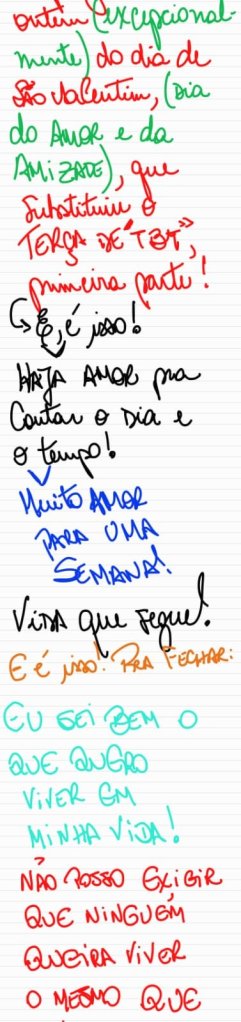 ontem (excepcional-
mente) do dia de
São Valentim, (Dia
do AMOR e da
AMIZADE), que
substituiu o
TERÇA DE "TBT",
primeira parte!
↳ E, é isso!
HAJA AMOR pra
Contar o Dia e
o tempo!
Muito AMOR
PARA UMA
SEMANA!
VIDA que segue!
E é isso! PRA FECHAR:
EU SEI BEM O
QUE QUERO
VIVER EM
MINHA VIDA!
NÃO POSSO EXIGIR
QUE NINGUÉM
QUEIRA VIVER
O MESMO QUE